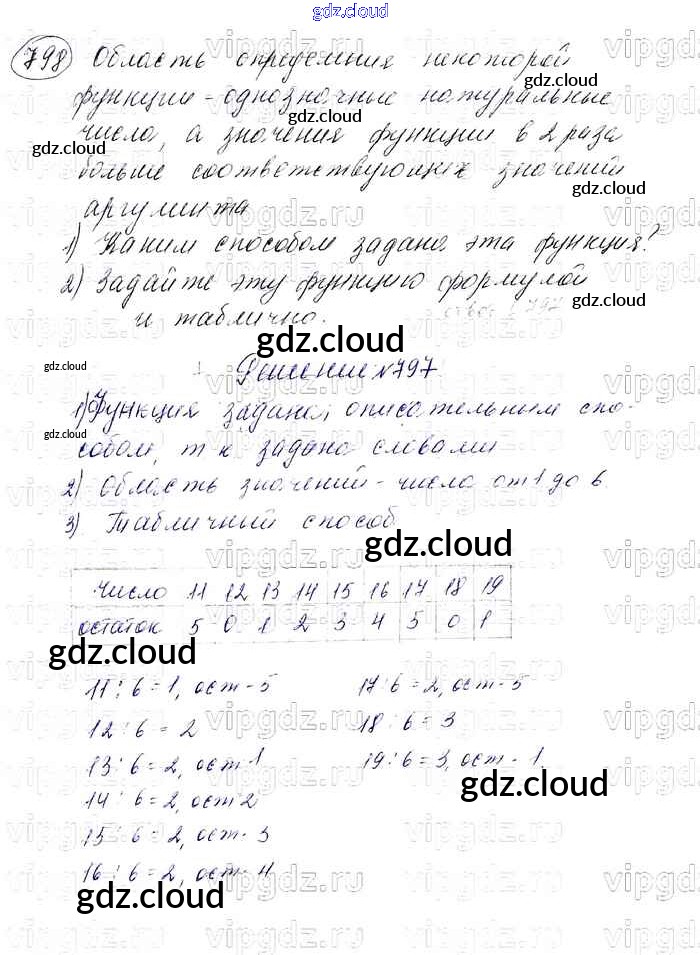 gdz.cloud
798 Область определния некоторой
функции - однозначные натуральные
числа, а значения функции в 2 раза
больше соответствующих значений
аргумента
1) Каким способом задана эта функция?
2) Задайте эту функцию формулой
и таблично.
Решение №797
1) Функция задана, описательным спо-
собом, т к задана словами
2) Область значений - числа от 1 до 6
3) Табличный способ
число 11 12 13 14 15 16 17 18 19
остаток 5 0 1 2 3 4 5 0 1
11 : 6 = 1, ост - 5
12 : 6 = 2
13 : 6 = 2, ост - 1
14 : 6 = 2, ост 2
15 : 6 = 2, ост - 3
16 : 6 = 2, ост - 4
17 : 6 = 2, ост - 5
18 : 6 = 3
19 : 6 = 3, ост - 1